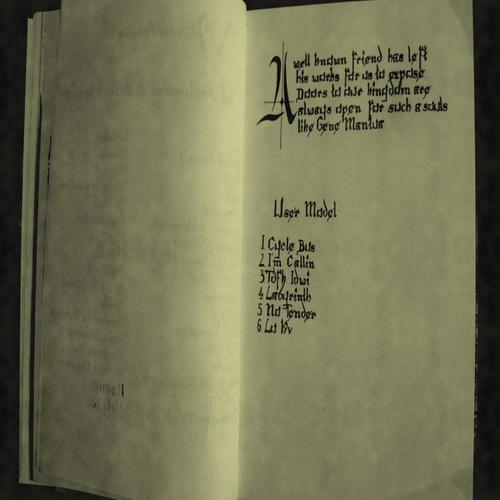 A well known friend has left
his works for us to expose
Doors to our kingdom are
always open for such a souls
like Gene Mantua
User Model
1 Cycle Bus
2 I'm Callin
3 Tdfh Idwi
4 Labyrinth
5 No Tender
6 Lo Kv